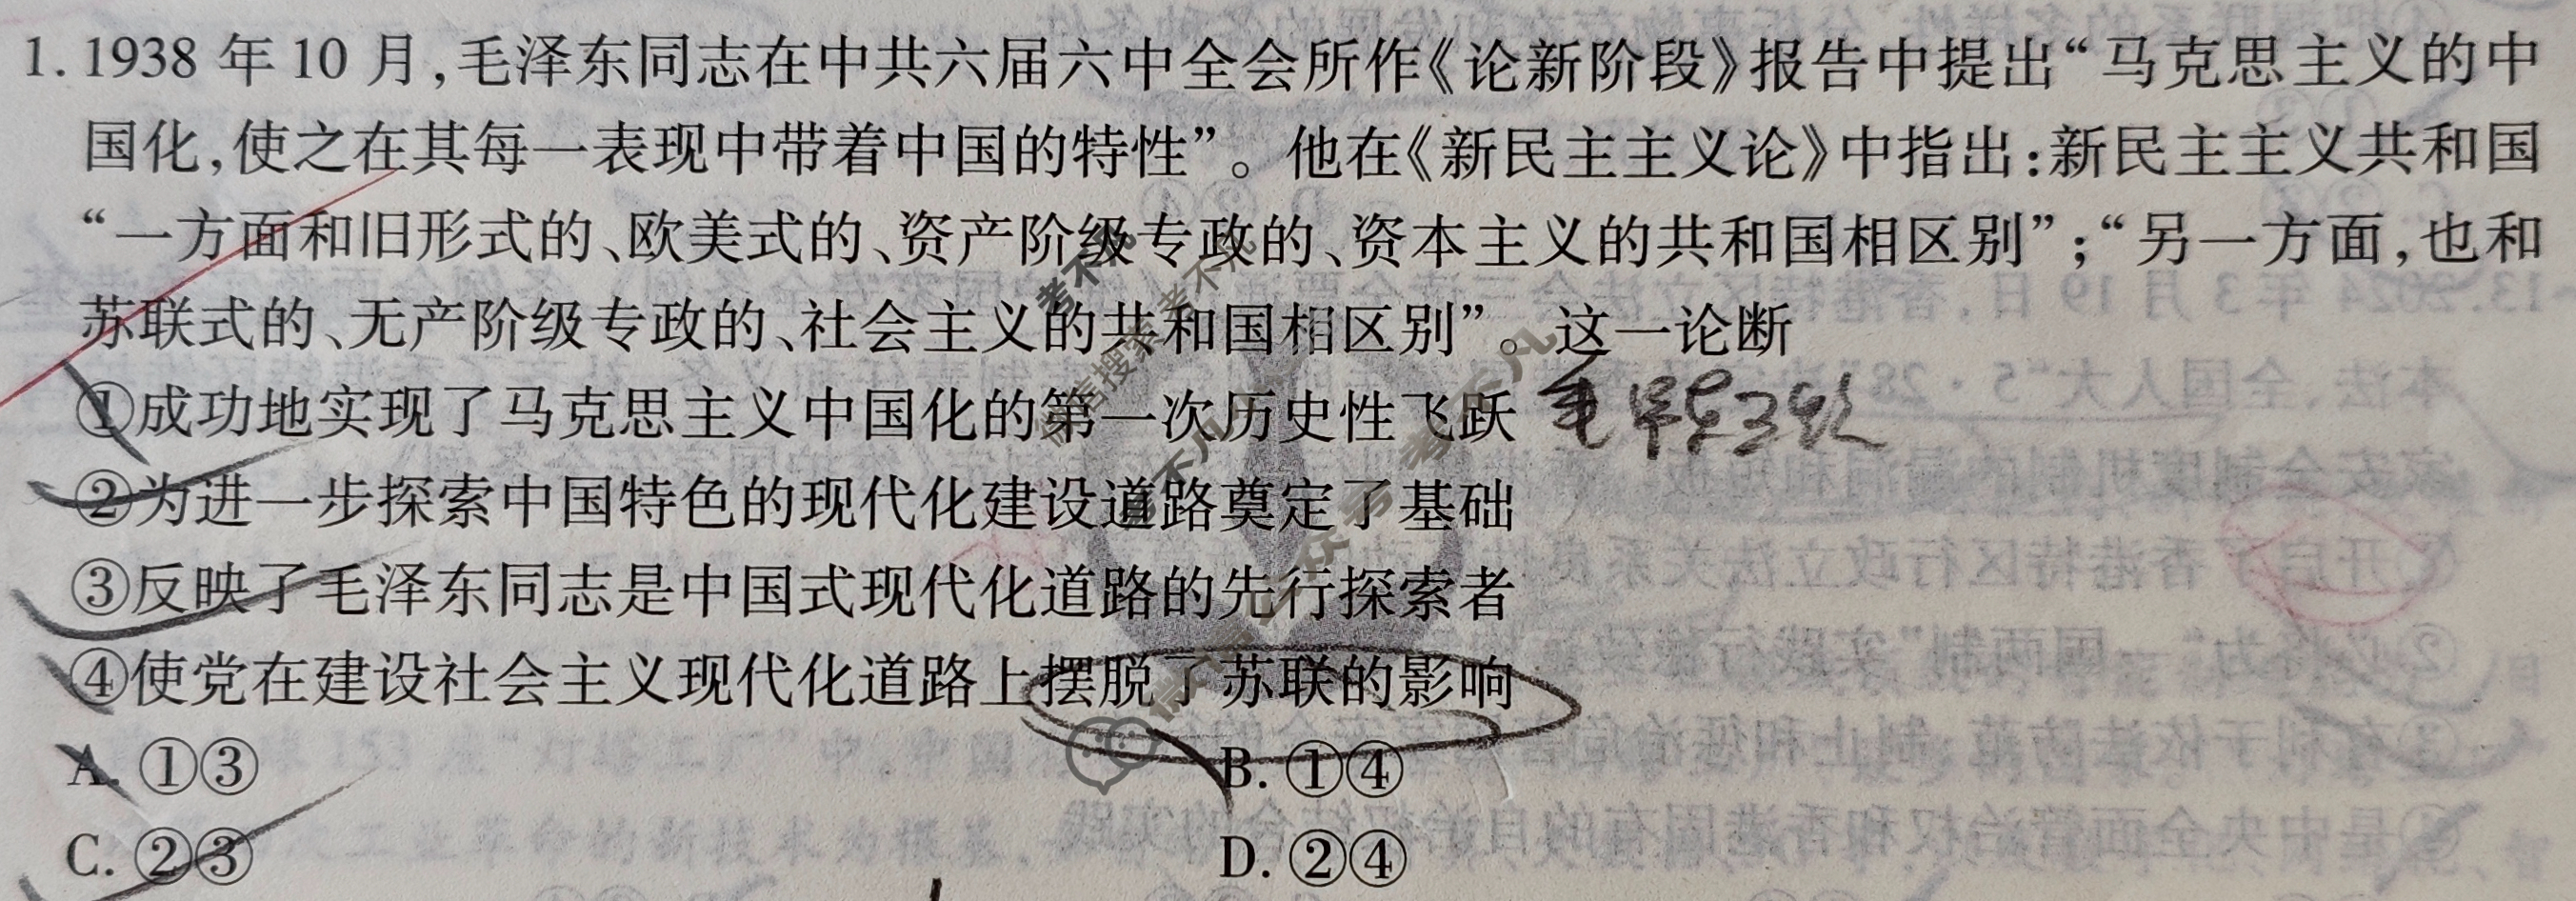 1. 1938 年 10 月,毛泽东同志在中共六届六中全会所作《论新阶段》报告中提出“马克思主义的中
国化,使之在其每一表现中带着中国的特性”。他在《新民主主义论》中指出:新民主主义共和国
“一方面和旧形式的、欧美式的、资产阶级专政的、资本主义的共和国相区别”;“另一方面,也和
苏联式的、无产阶级专政的、社会主义的共和国相区别”。这一论断
①成功地实现了马克思主义中国化的第一次历史性飞跃
②为进一步探索中国特色的现代化建设道路奠定了基础
③反映了毛泽东同志是中国式现代化道路的先行探索者
④使党在建设社会主义现代化道路上摆脱了苏联的影响
A. ①③ B. ①④
C. ②③ D. ②④